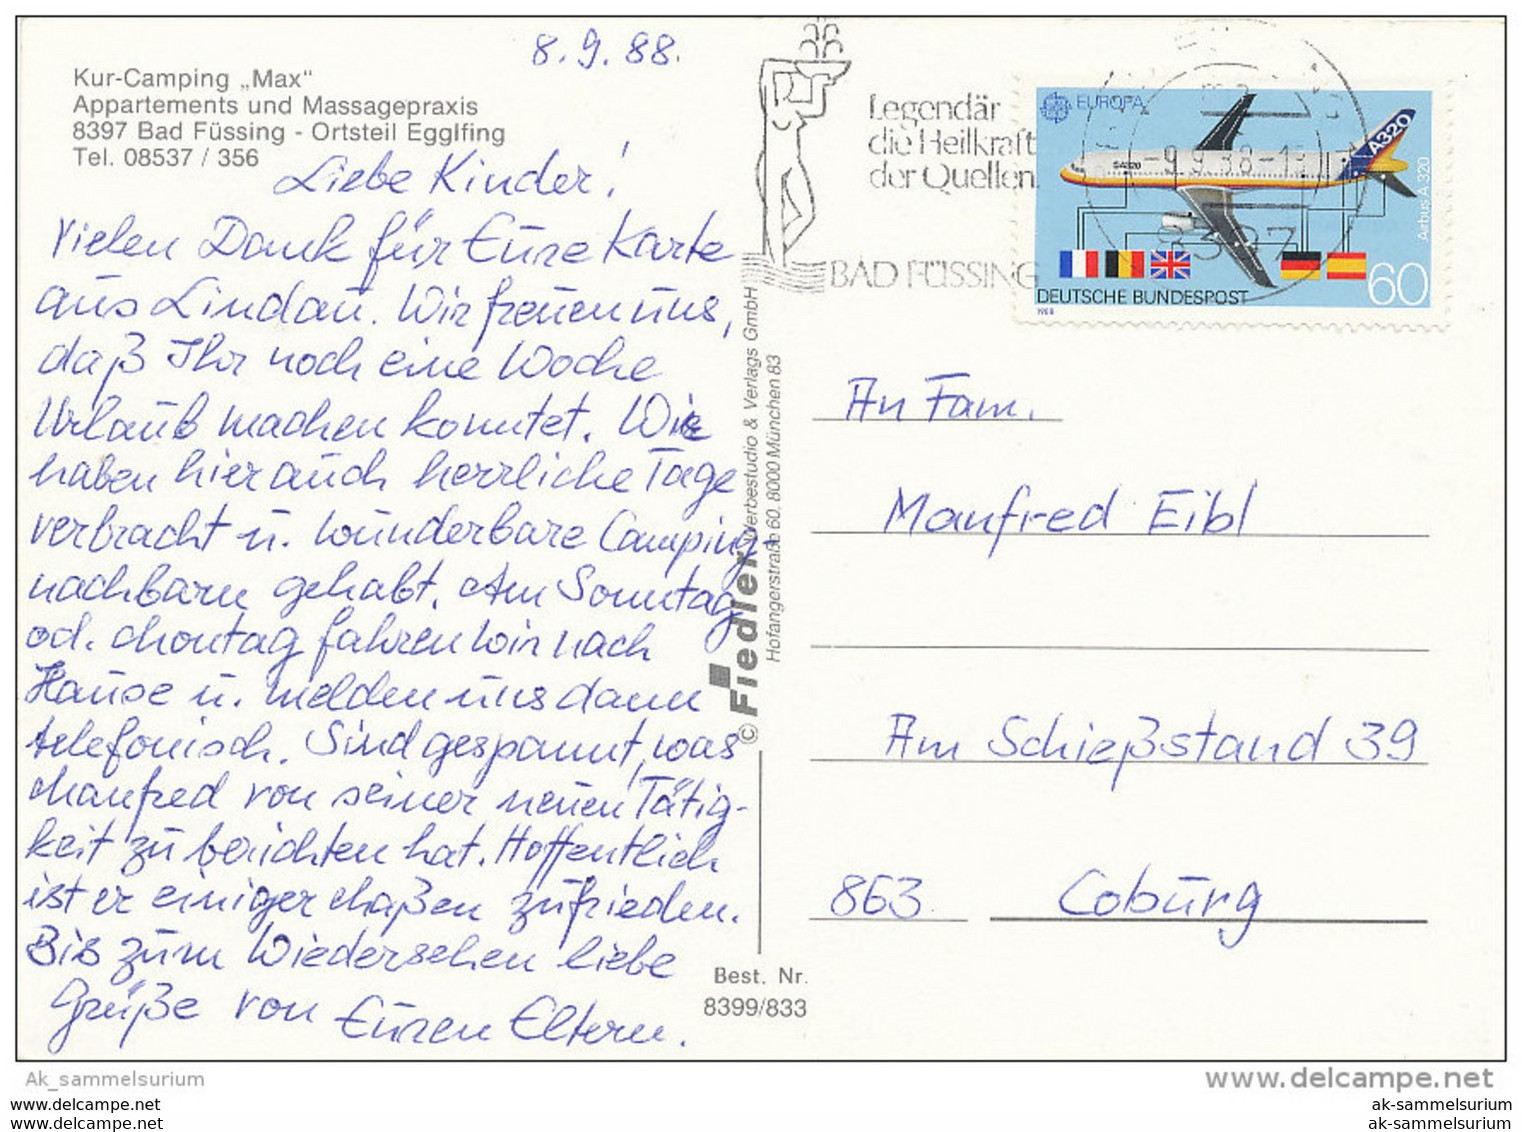 8.9.88.
Kur-Camping „Max“
Appartements und Massagepraxis
8397 Bad Füssing - Ortsteil Egglfing
Tel. 08537 / 356
Liebe Kinder!
Vielen Dank für Eure Karte
aus Lindau. Wir freuen uns,
daß Ihr noch eine Woche
Urlaub machen konntet. Wir
haben hier auch herrliche Tage
verbracht u. wunderbare Camping-
nachbarn gehabt. Am Sonntag
od. Montag fahren wir nach
Hause u. melden uns dann
telefonisch. Sind gespannt, was
Manfred von seiner neuen Tätig-
keit zu berichten hat. Hoffentlich
ist er einigermaßen zufrieden.
Bis zum Wiedersehen liebe
Grüße von Euren Eltern.
© Fiedler Werbestudio & Verlags GmbH
Hofangerstraße 60, 8000 München 83
Best. Nr.
8399/833
Legendär
die Heilkraft
der Quellen.
BAD FÜSSING
EUROPA
A320
A320
Airbus A 320
-9.9.88-
8397
DEUTSCHE BUNDESPOST
60
1988
An Fam.
Manfred Eibl
Am Schießstand 39
863 Coburg
Ak_sammelsurium
www.delcampe.net
ak-sammelsurium
ak-sammelsurium
ak-sammelsurium
ak-sammelsurium